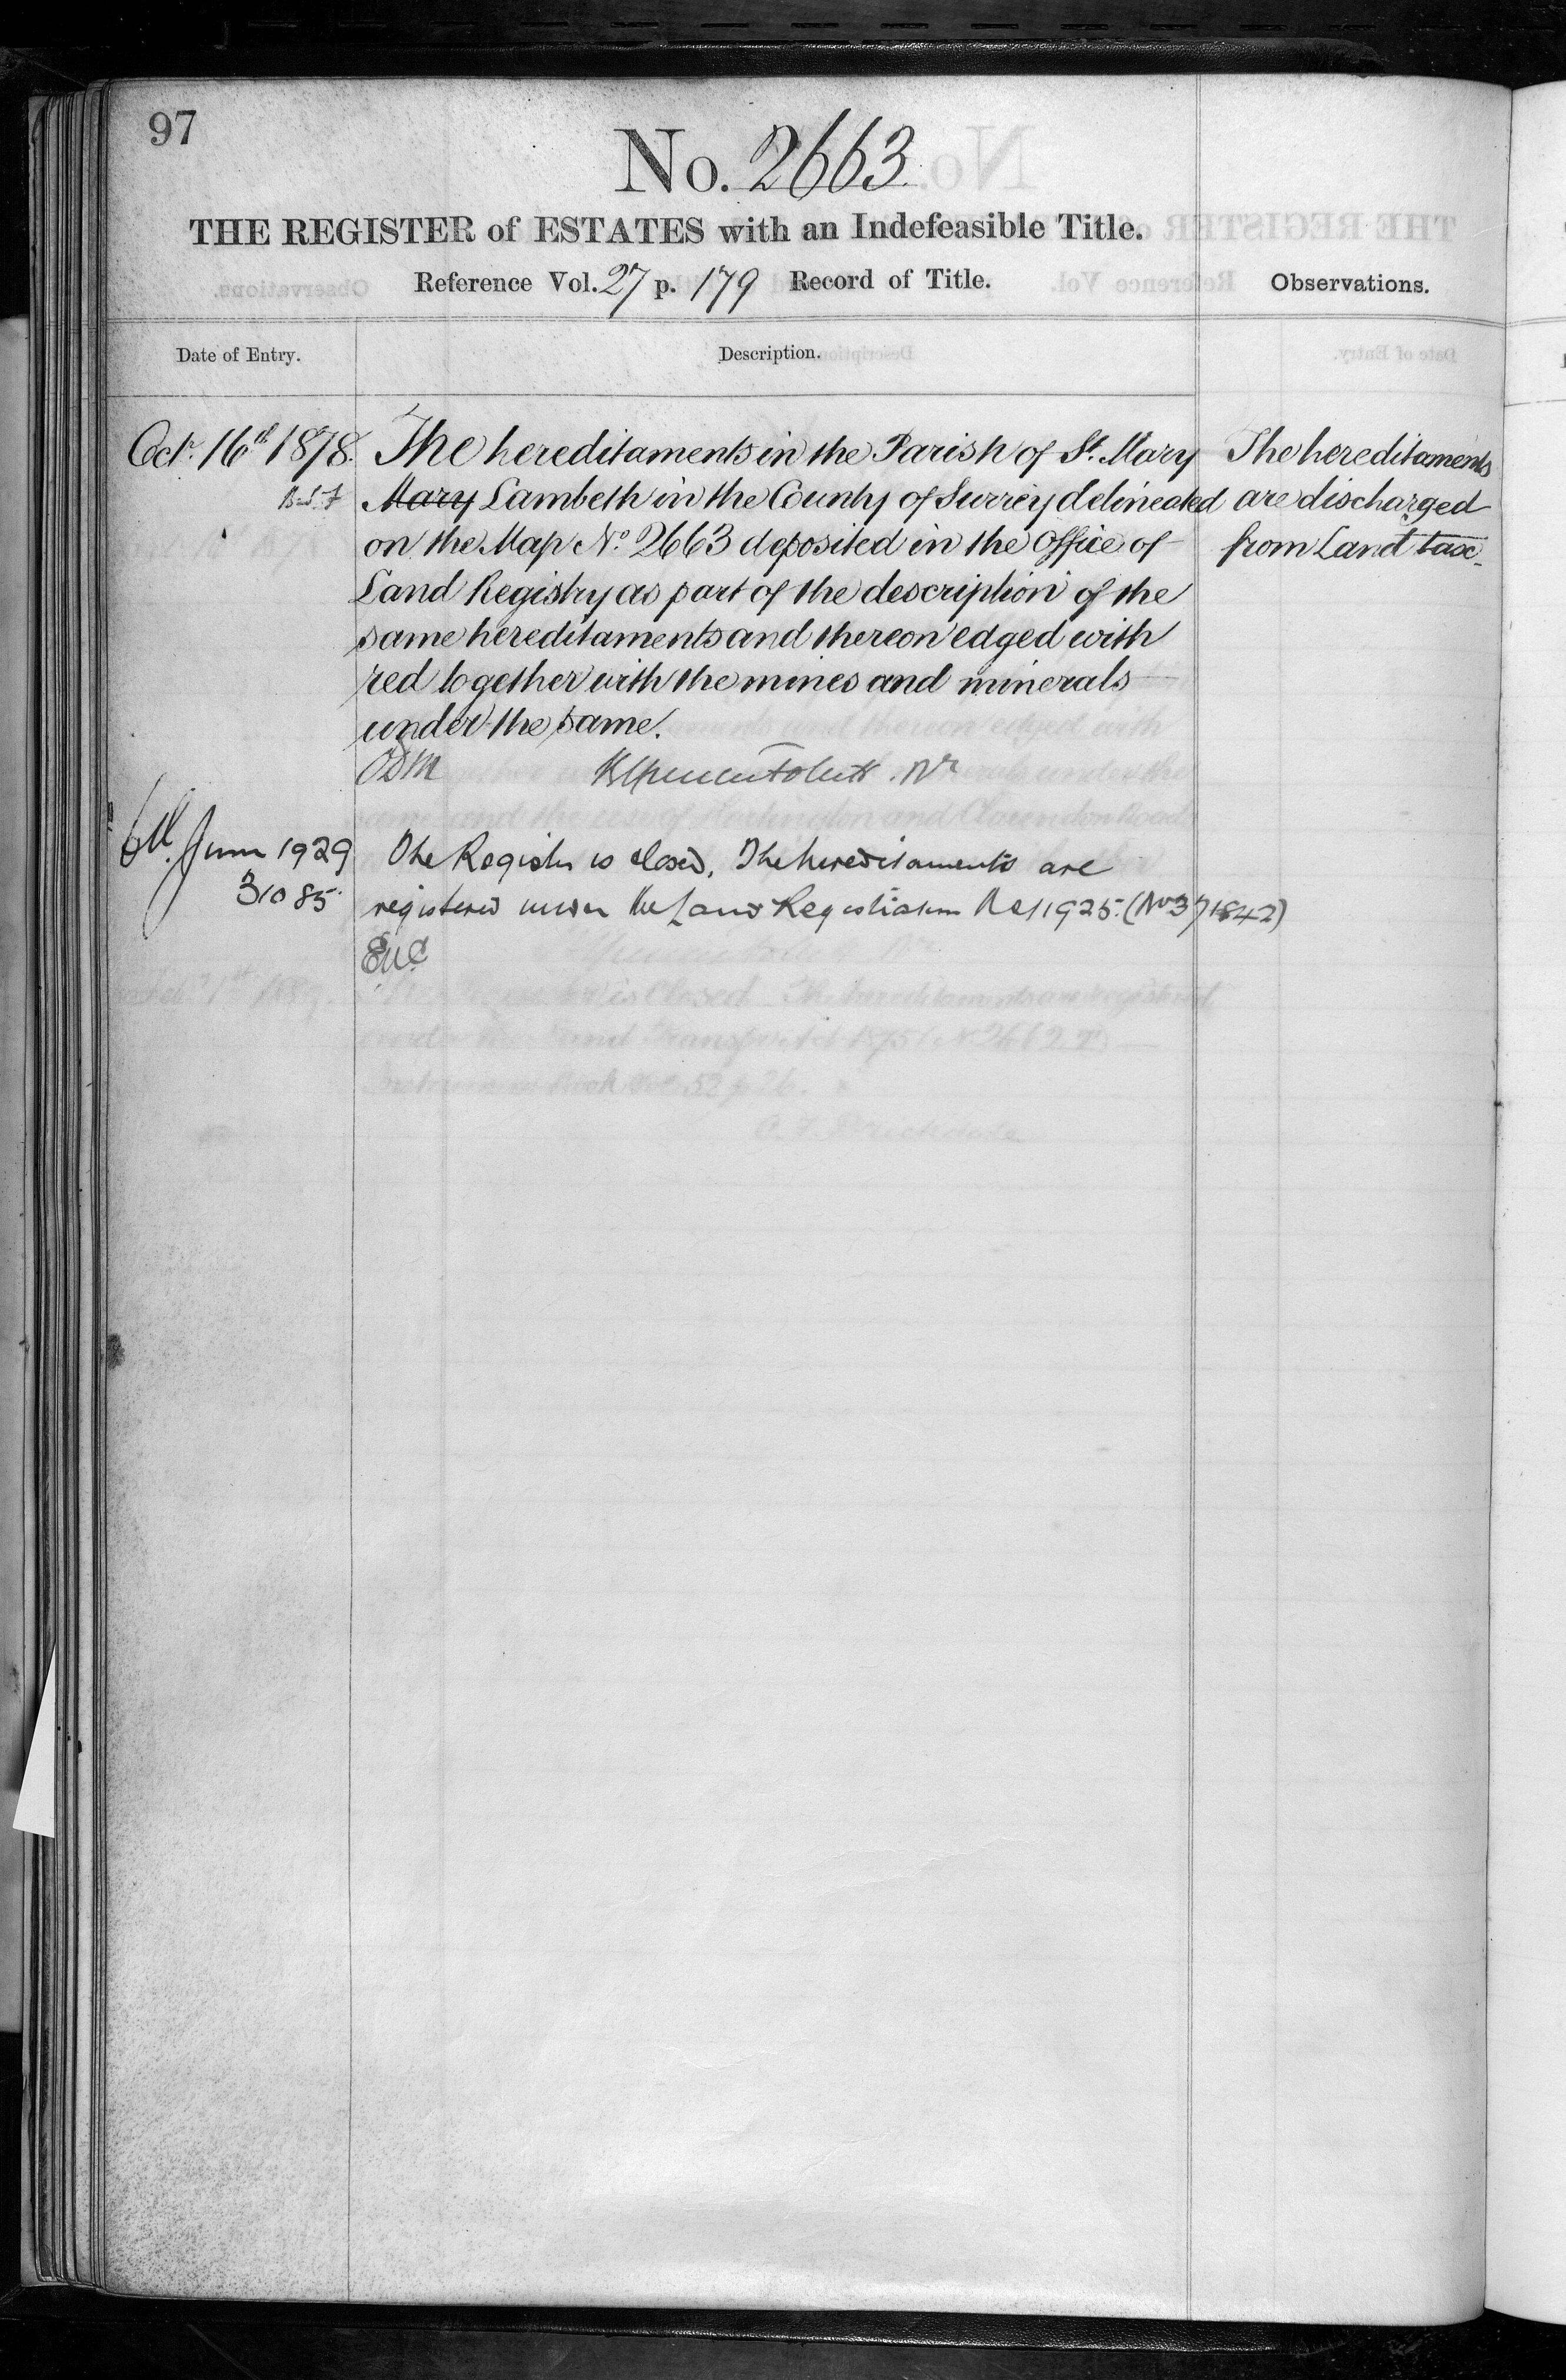 97
No. 2663.
THE REGISTER of ESTATES with an Indefeasible Title.
Reference Vol. 27 p. 179 Record of Title.
Observations.
Date of Entry.
Description.
Octr. 16th 1878. The hereditaments in the Parish of St. Mary
Mary Lambeth in the County of Surrey delineated
on the Map No. 2663 deposited in the Office of
Land Registry as part of the description of the
same hereditaments and thereon edged with
red together with the mines and minerals
under the same.
The hereditaments
are discharged
from Land tax.
6th June 1929 The Register is closed. The hereditaments are
31085 registered under the Land Registration Act 1925. (No 371842)